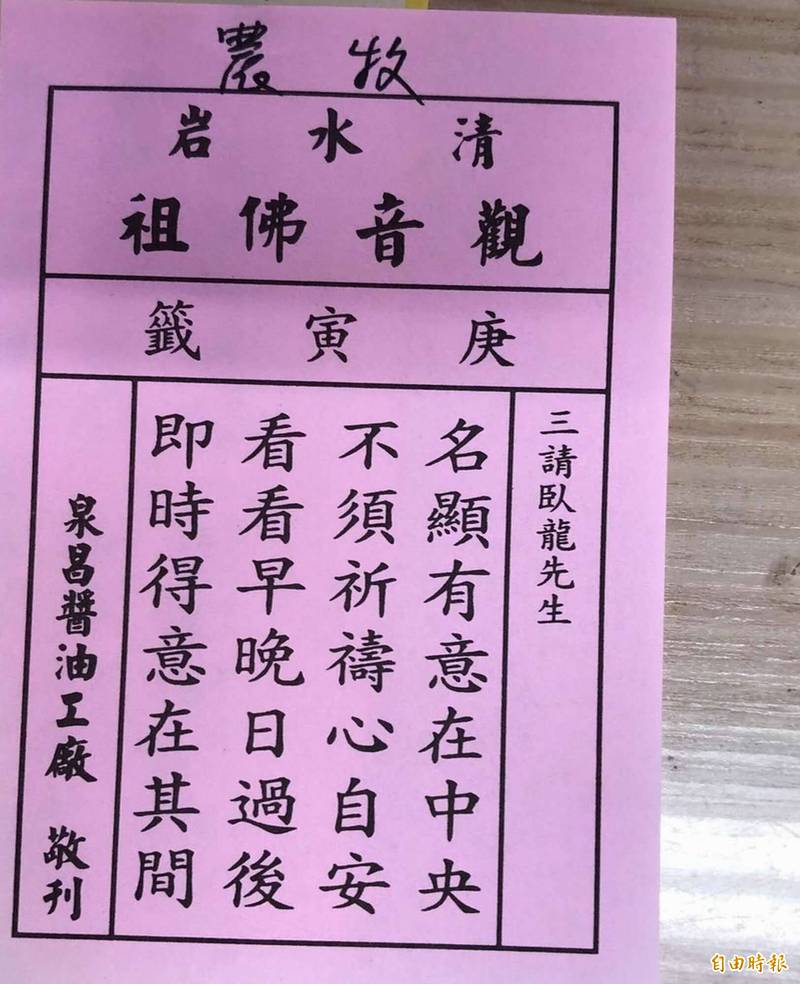 農牧
清水岩
觀音佛祖
庚寅籤
三請臥龍先生
名顯有意在中央
不須祈禱心自安
看看早晚日過後
即時得意在其間
泉昌醬油工廠 敬刊
自由時報